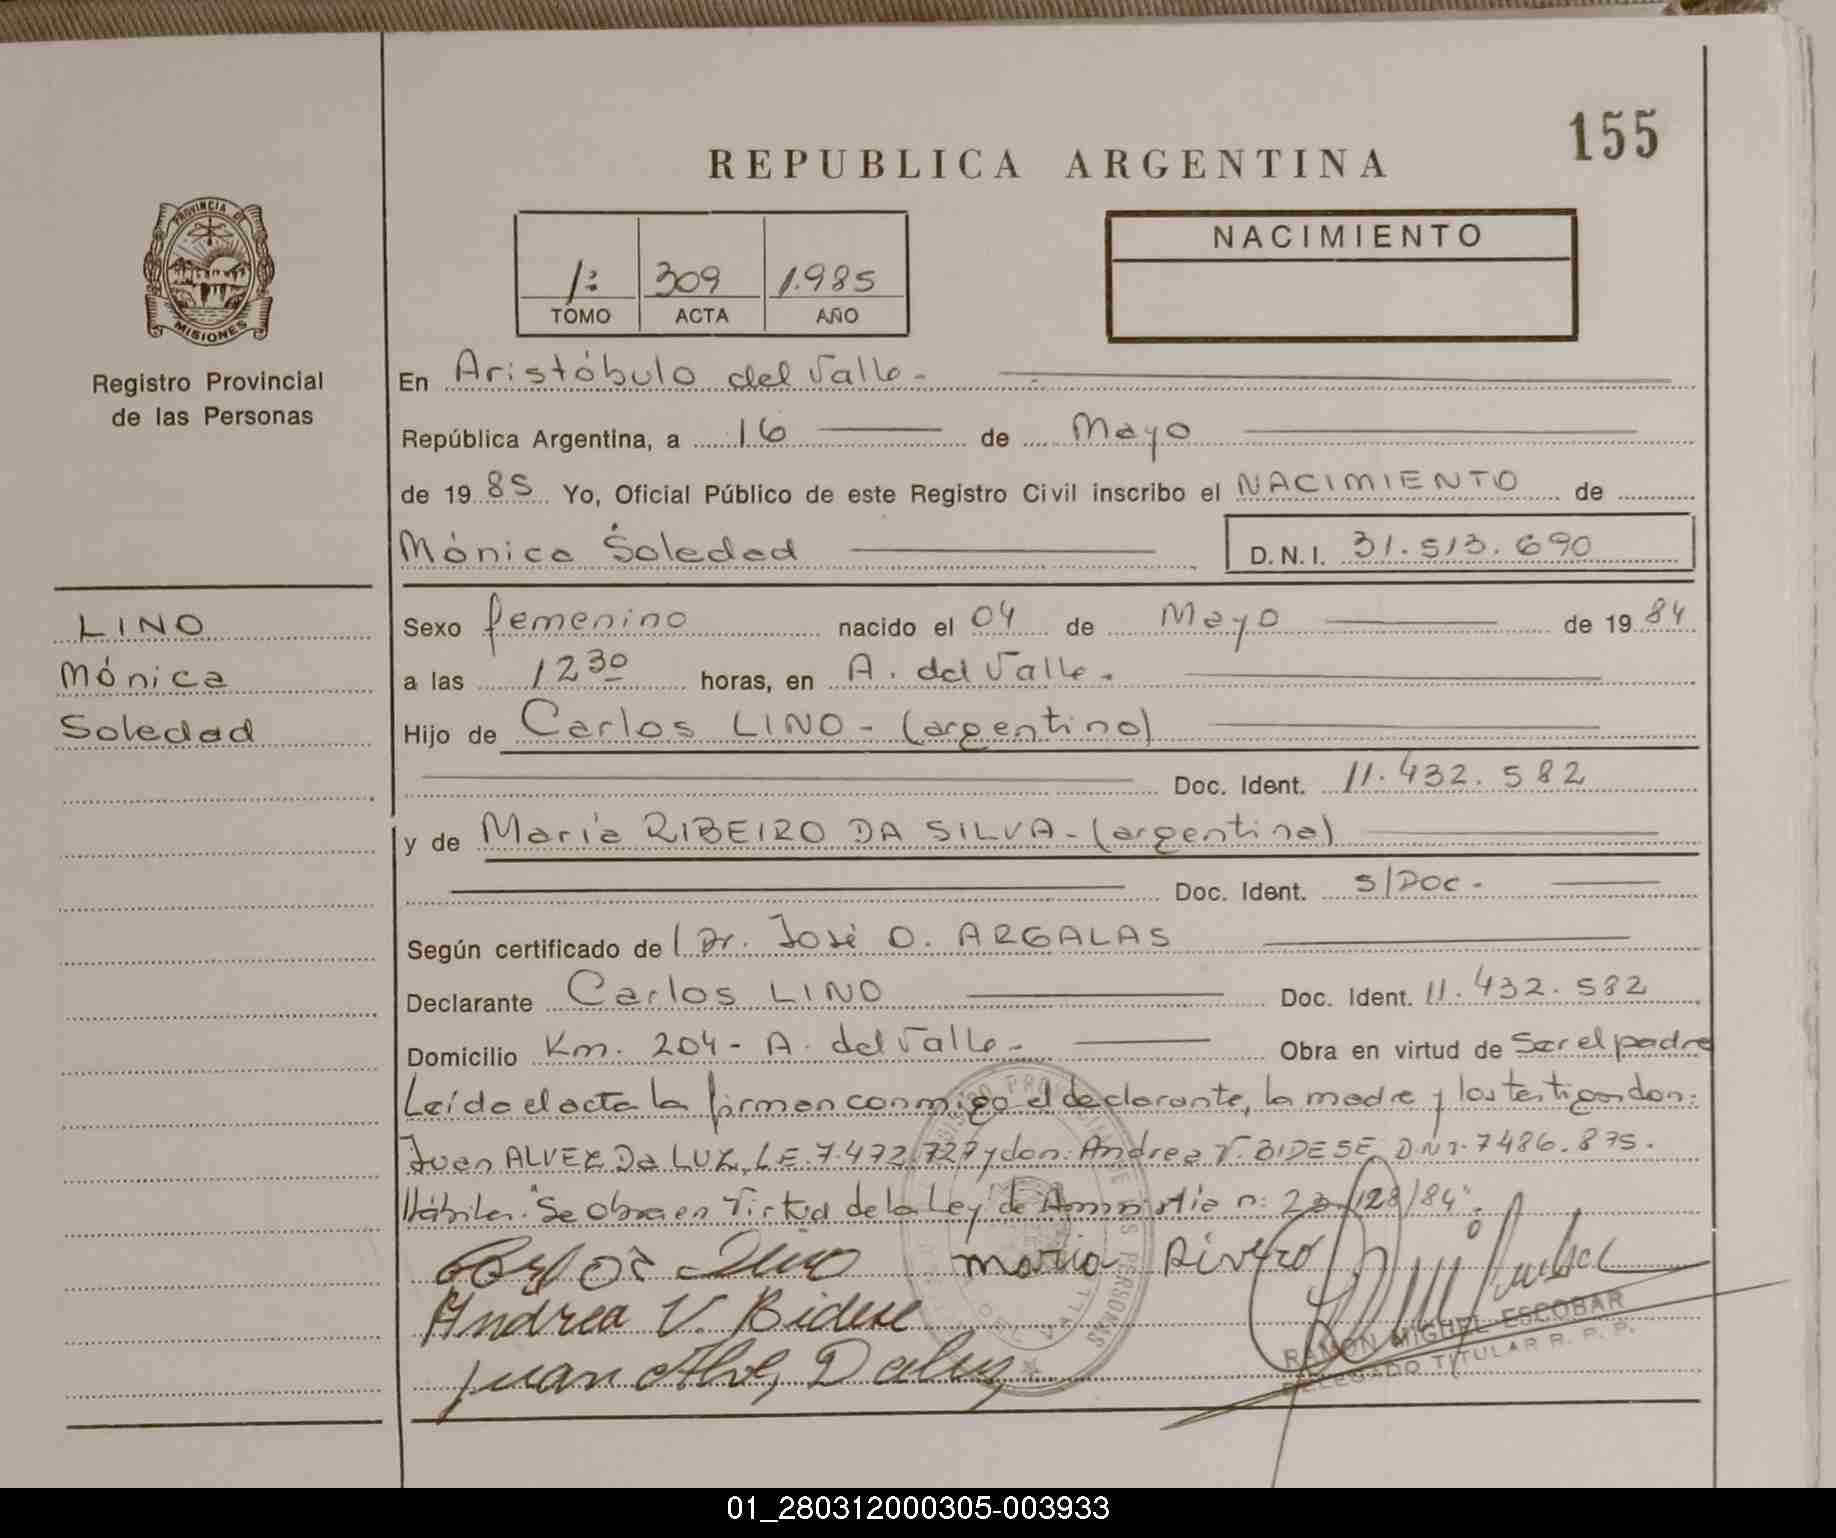 155
REPUBLICA ARGENTINA
PROVINCIA DE
MISIONES
Registro Provincial
de las Personas
1º 309 1.985
TOMO ACTA AÑO
NACIMIENTO
En Aristóbulo del Valle.
República Argentina, a 16 de Mayo
de 19 85 Yo, Oficial Público de este Registro Civil inscribo el NACIMIENTO de
Mónica Soledad D.N.I. 31.513.690
LINO
Mónica
Soledad
Sexo femenino nacido el 04 de Mayo de 19 84
a las 12 30 horas, en A. del Valle.
Hijo de Carlos LINO - (argentino)
Doc. Ident. 11.432.582
y de María RIBEIRO DA SILVA - (argentina)
Doc. Ident. S/Doc.
Según certificado de Dr. José O. ARGALAS
Declarante Carlos LINO Doc. Ident. 11.432.582
Domicilio Km. 204 - A. del Valle. Obra en virtud de Ser el padre
Leída el acta la firman conmigo el declarante, la madre y los testigos don:
Juan ALVEZ Da LUZ, L.E. 7.472.727 y don: Andrea V. BIDESE, D.N.I. 7486.875.
Hábiles. "Se obra en Virtud de la Ley de Amnistía n: 23.128/84".
Carlos Lino maria Rivero
Andrea V. Bidese
Juan Alve, Daluz
RAMON MIGUEL ESCOBAR
DELEGADO TITULAR R. P. P.
01_280312000305-003933